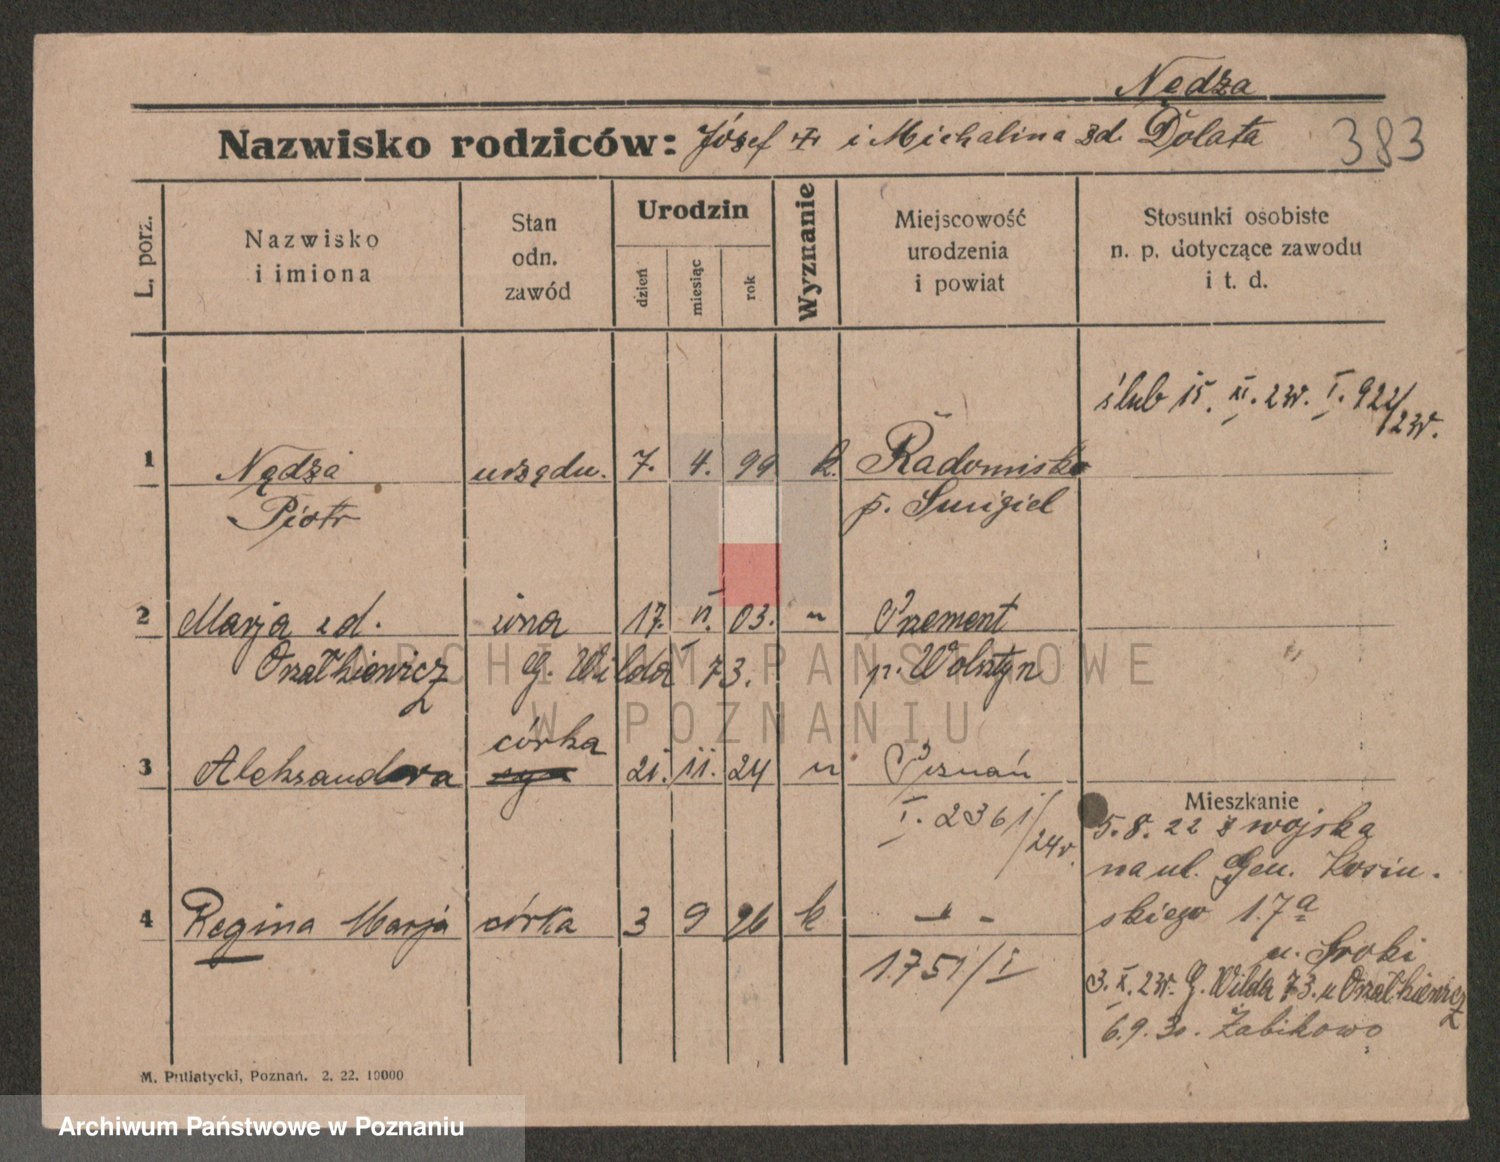 Nędza
Nazwisko rodziców: Józef i Michalina zd. Dolata 383
L. porz.
Nazwisko
i imiona
Stan
odn.
zawód
Urodzin
dzień
miesiąc
rok
Wyznanie
Miejscowość
urodzenia
i powiat
Stosunki osobiste
n. p. dotyczące zawodu
i t. d.
ślub 15. XI. 23r. I. 922/23r.
1 Nędza urzędn. 7. 4. 99 k. Radomisko
Piotr p. Śmigiel
2 Marja zd. żona 17. 03. " Przement
G. Wilda 73. p. Wolsztyn
córka
3 Aleksandra 21. 11. 24 " Poznań
I. 2361/24r.
4 Regina Marja córka 3 9 26 k - " -
1751/I
Mieszkanie
5.8.22 z wojska
na ul. Gen. Kosiń-
skiego 17a
u. Sroki
3. X. 23r. G. Wilda 73. u
6.9.30. Żabikowo
M. Putiatycki, Poznań. 2. 22. 10000
ARCHIWUM PAŃSTWOWE
W POZNANIU
Archiwum Państwowe w Poznaniu